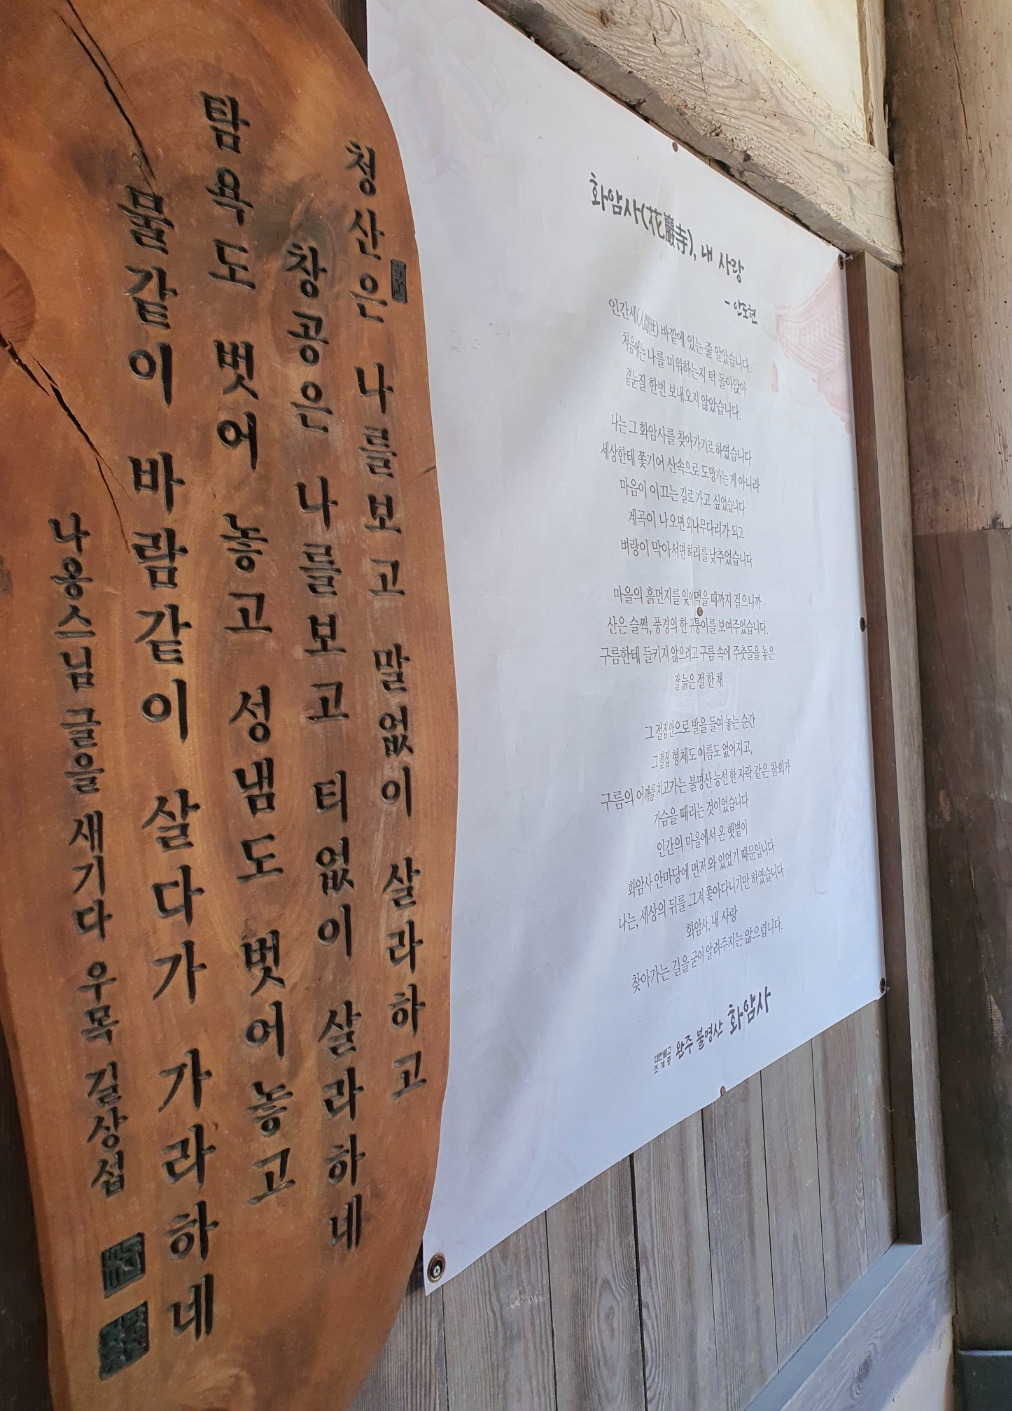 청산은 나를보고 말없이 살라하고
창공은 나를보고 티없이 살라하네
탐욕도 벗어 놓고 성냄도 벗어놓고
물같이 바람같이 살다가 가라하네
나옹스님 글을 새기다 우목 길상섭
화암사(花巖寺), 내 사랑
- 안도현
인간세(人間世) 바깥에 있는 줄 알았습니다.
처음에는 나를 미워하는지 턱 돌아앉아
곁눈질 한번 보내오지 않았습니다.
나는 그 화암사를 찾아가기로 하였습니다
세상한테 쫓기어 산속으로 도망가는 게 아니라
마음이 이끄는 길로 가고 싶었습니다
계곡이 나오면 외나무다리가 되고
벼랑이 막아서면 허리를 낮추었습니다
마을의 흙먼지를 잊어먹을 때까지 걸으니까
산은 슬쩍, 풍경의 한 귀퉁이를 보여주었습니다.
구름한테 들키지 않으려고 구름 속에 주춧돌을 놓은
잘 늙은 절 한 채
그 절집 안으로 발을 들여 놓는 순간
그 절집 형체도 이름도 없어지고,
구름의 어깨를 치고가는 불명산 능선 한 자락 같은 참회가
가슴을 때리는 것이었습니다
인간의 마을에서 온 햇볕이
화암사 안마당에 먼저 와 있었기 때문입니다
나는, 세상의 뒤를 그저 쫓아다니기만 하였습니다
화암사, 내 사랑
찾아가는 길을 굳이 알려주지는 않으렵니다.
대한불교조계종 완주 불명산 화암사